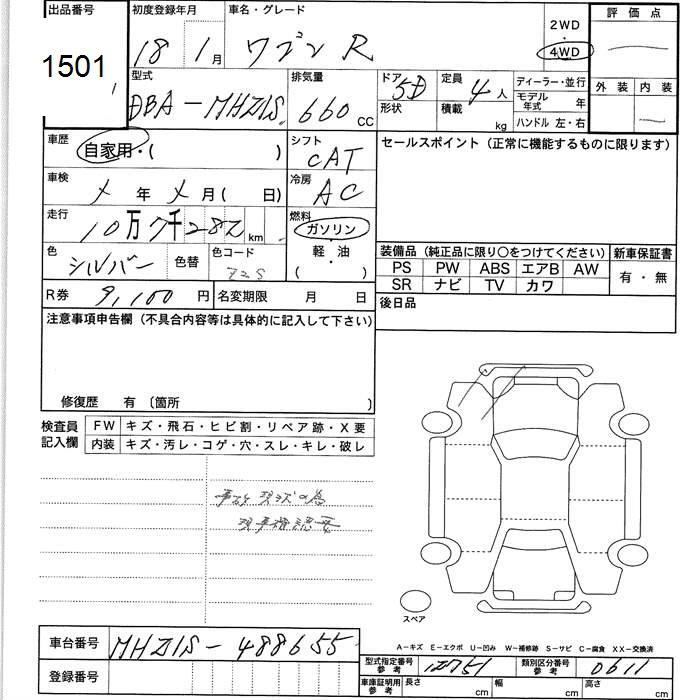 出品番号 1501
初度登録年月 18 1月
車名・グレード ワゴンR
2WD ・ 4WD
評価点
外装 内装
型式 DBA-MH21S
排気量 660 CC
ドア 5D
形状
定員 4人
積載 kg
ディーラー・並行
モデル年式 年
ハンドル 左・右
車歴 自家用・( )
シフト CAT
セールスポイント (正常に機能するものに限ります)
車検 メ 年 メ 月( 日)
冷房 AC
走行 10万7千282km
燃料 ガソリン
軽・油
( )
色 シルバー 色替 色コード Z2S
装備品 (純正品に限り〇をつけてください) 新車保証書
PS PW ABS エアB AW
SR ナビ TV カワ
有・無
R券 9,100円 名変期限 月 日
後日品
注意事項申告欄 (不具合内容等は具体的に記入して下さい)
修復歴 有 〔箇所 〕
検査員記入欄
FW キズ・飛石・ヒビ割・リペア跡・X要
内装 キズ・汚レ・コゲ・穴・スレ・キレ・破レ
事故現状の為
現車確認要
スペア
A－キズ E－エクボ U－凹み W－補修跡 S－サビ C－腐食 XX－交換済
車台番号 MH21S-488655
型式指定番号 参考 12751
類別区分番号 参考 0611
登録番号
車庫証明用 参考 長さ cm 幅 cm 高さ cm